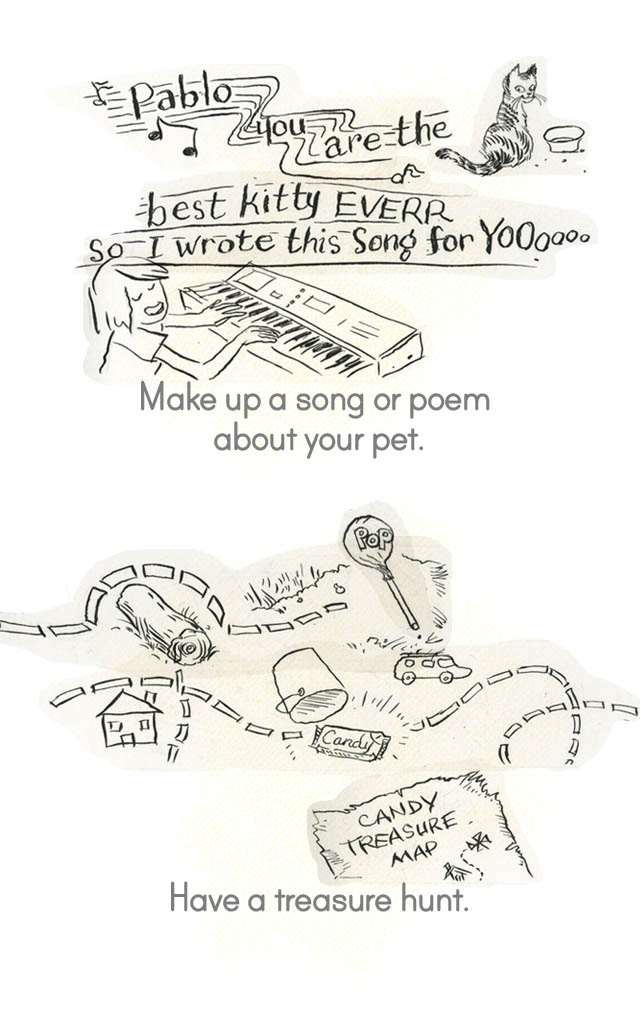 Pablo
you are the
best kitty EVERR
So I wrote this Song for YOOoooo
Make up a song or poem
about your pet.
POP
Candy
CANDY
TREASURE
MAP
Have a treasure hunt.